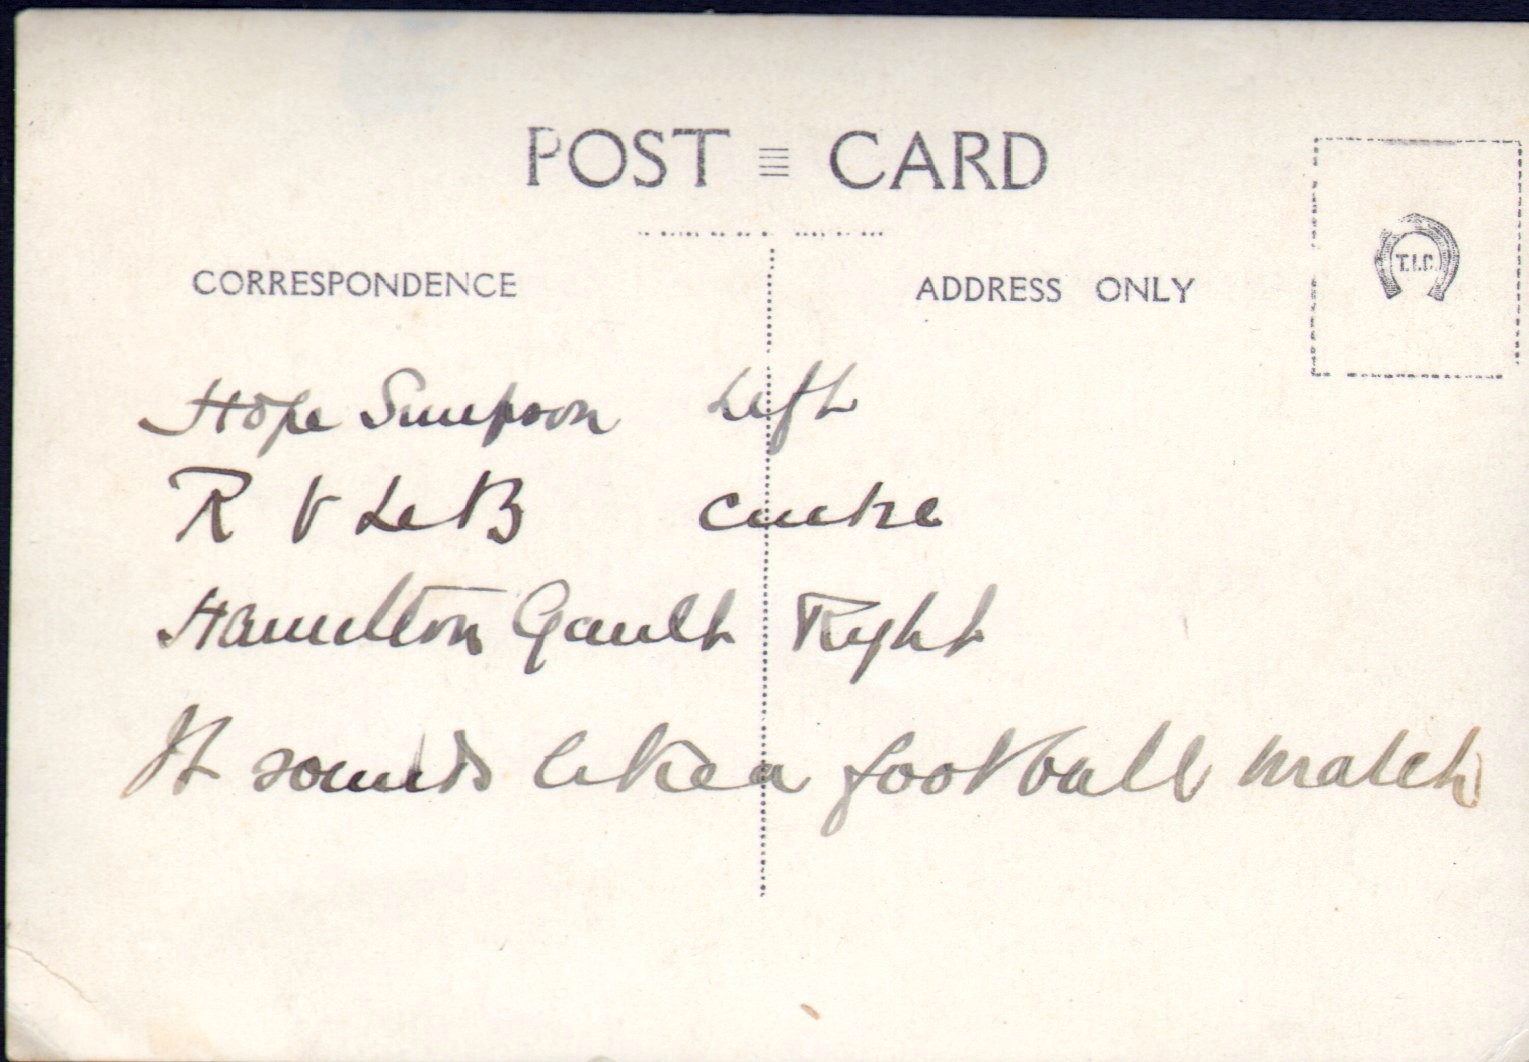 POST CARD
CORRESPONDENCE
ADDRESS ONLY
T.I.C.
Hope Simpson Left
R V LeB centre
Hamilton Gault Right
It sounds like a football match